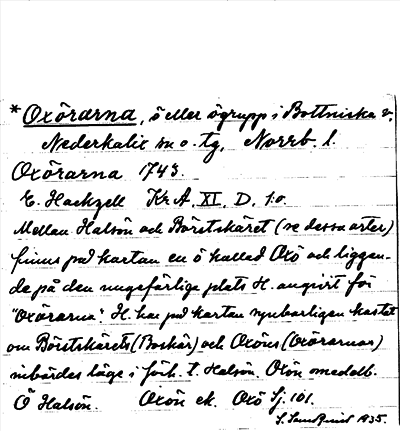 *Oxörarna, ö eller ögrupp i Bottniska v.
Nederkalix sn o. tg, Norrb. l.
Oxörarna 1743.
E. Hackzell KrA. XI. D. 1:o.
Mellan Halsön och Böistskäret (se dessa arter)
finns på kartan en ö kallad Oxö och liggen-
de på den ungefärlige plats H. angivit för
"Oxörarna". H. har på kartan synbarligen kastat
om Böistskärets (Boskär) och Oxöns (Oxörarnas)
inbördes läge i förh. t. Halsön. Oxön omedelb.
Ö Halsön. Oxön ek. Oxö Sj. 101.
1935.